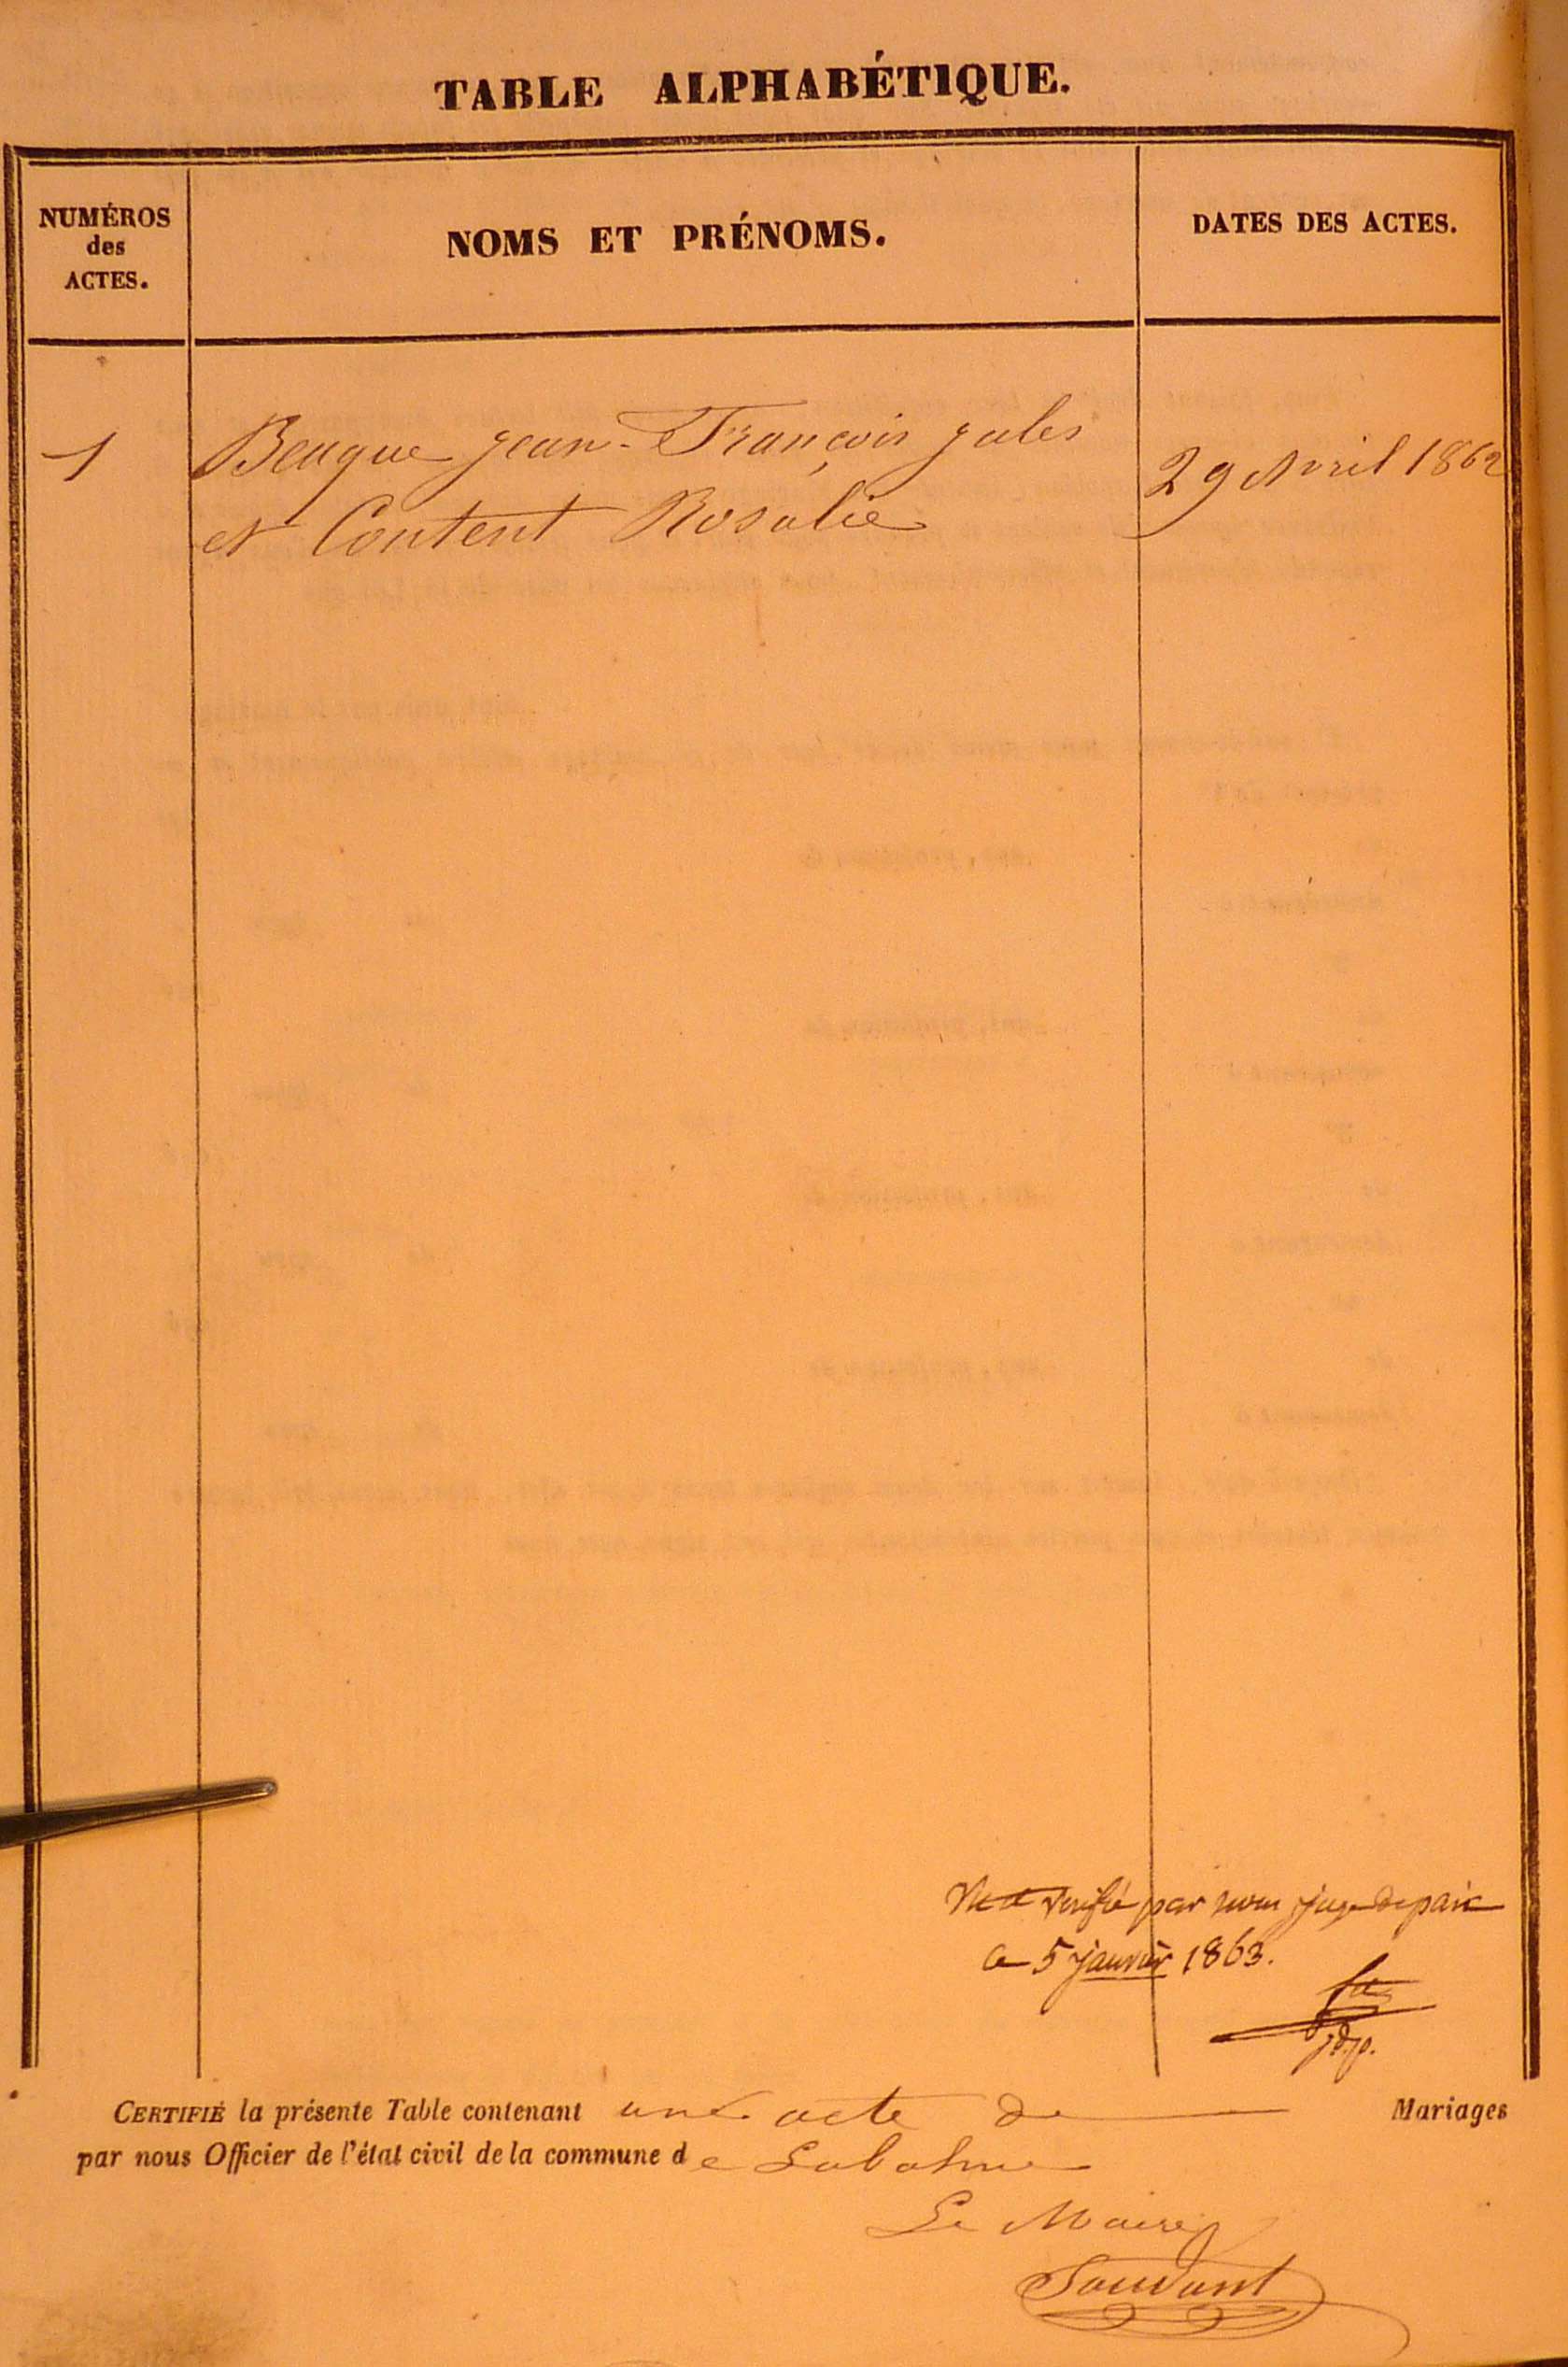 TABLE ALPHABÉTIQUE.
NUMÉROS
des
ACTES.
NOMS ET PRÉNOMS.
DATES DES ACTES.
1
Beuque jean-François jules
et Content Rosalie
29 Avril 1862
Vu et vérifié par nous juge de paix
ce 5 janvier 1863.
j.d.p.
CERTIFIÉ la présente Table contenant une acte de Mariages
par nous Officier de l'état civil de la commune de
Le Maire